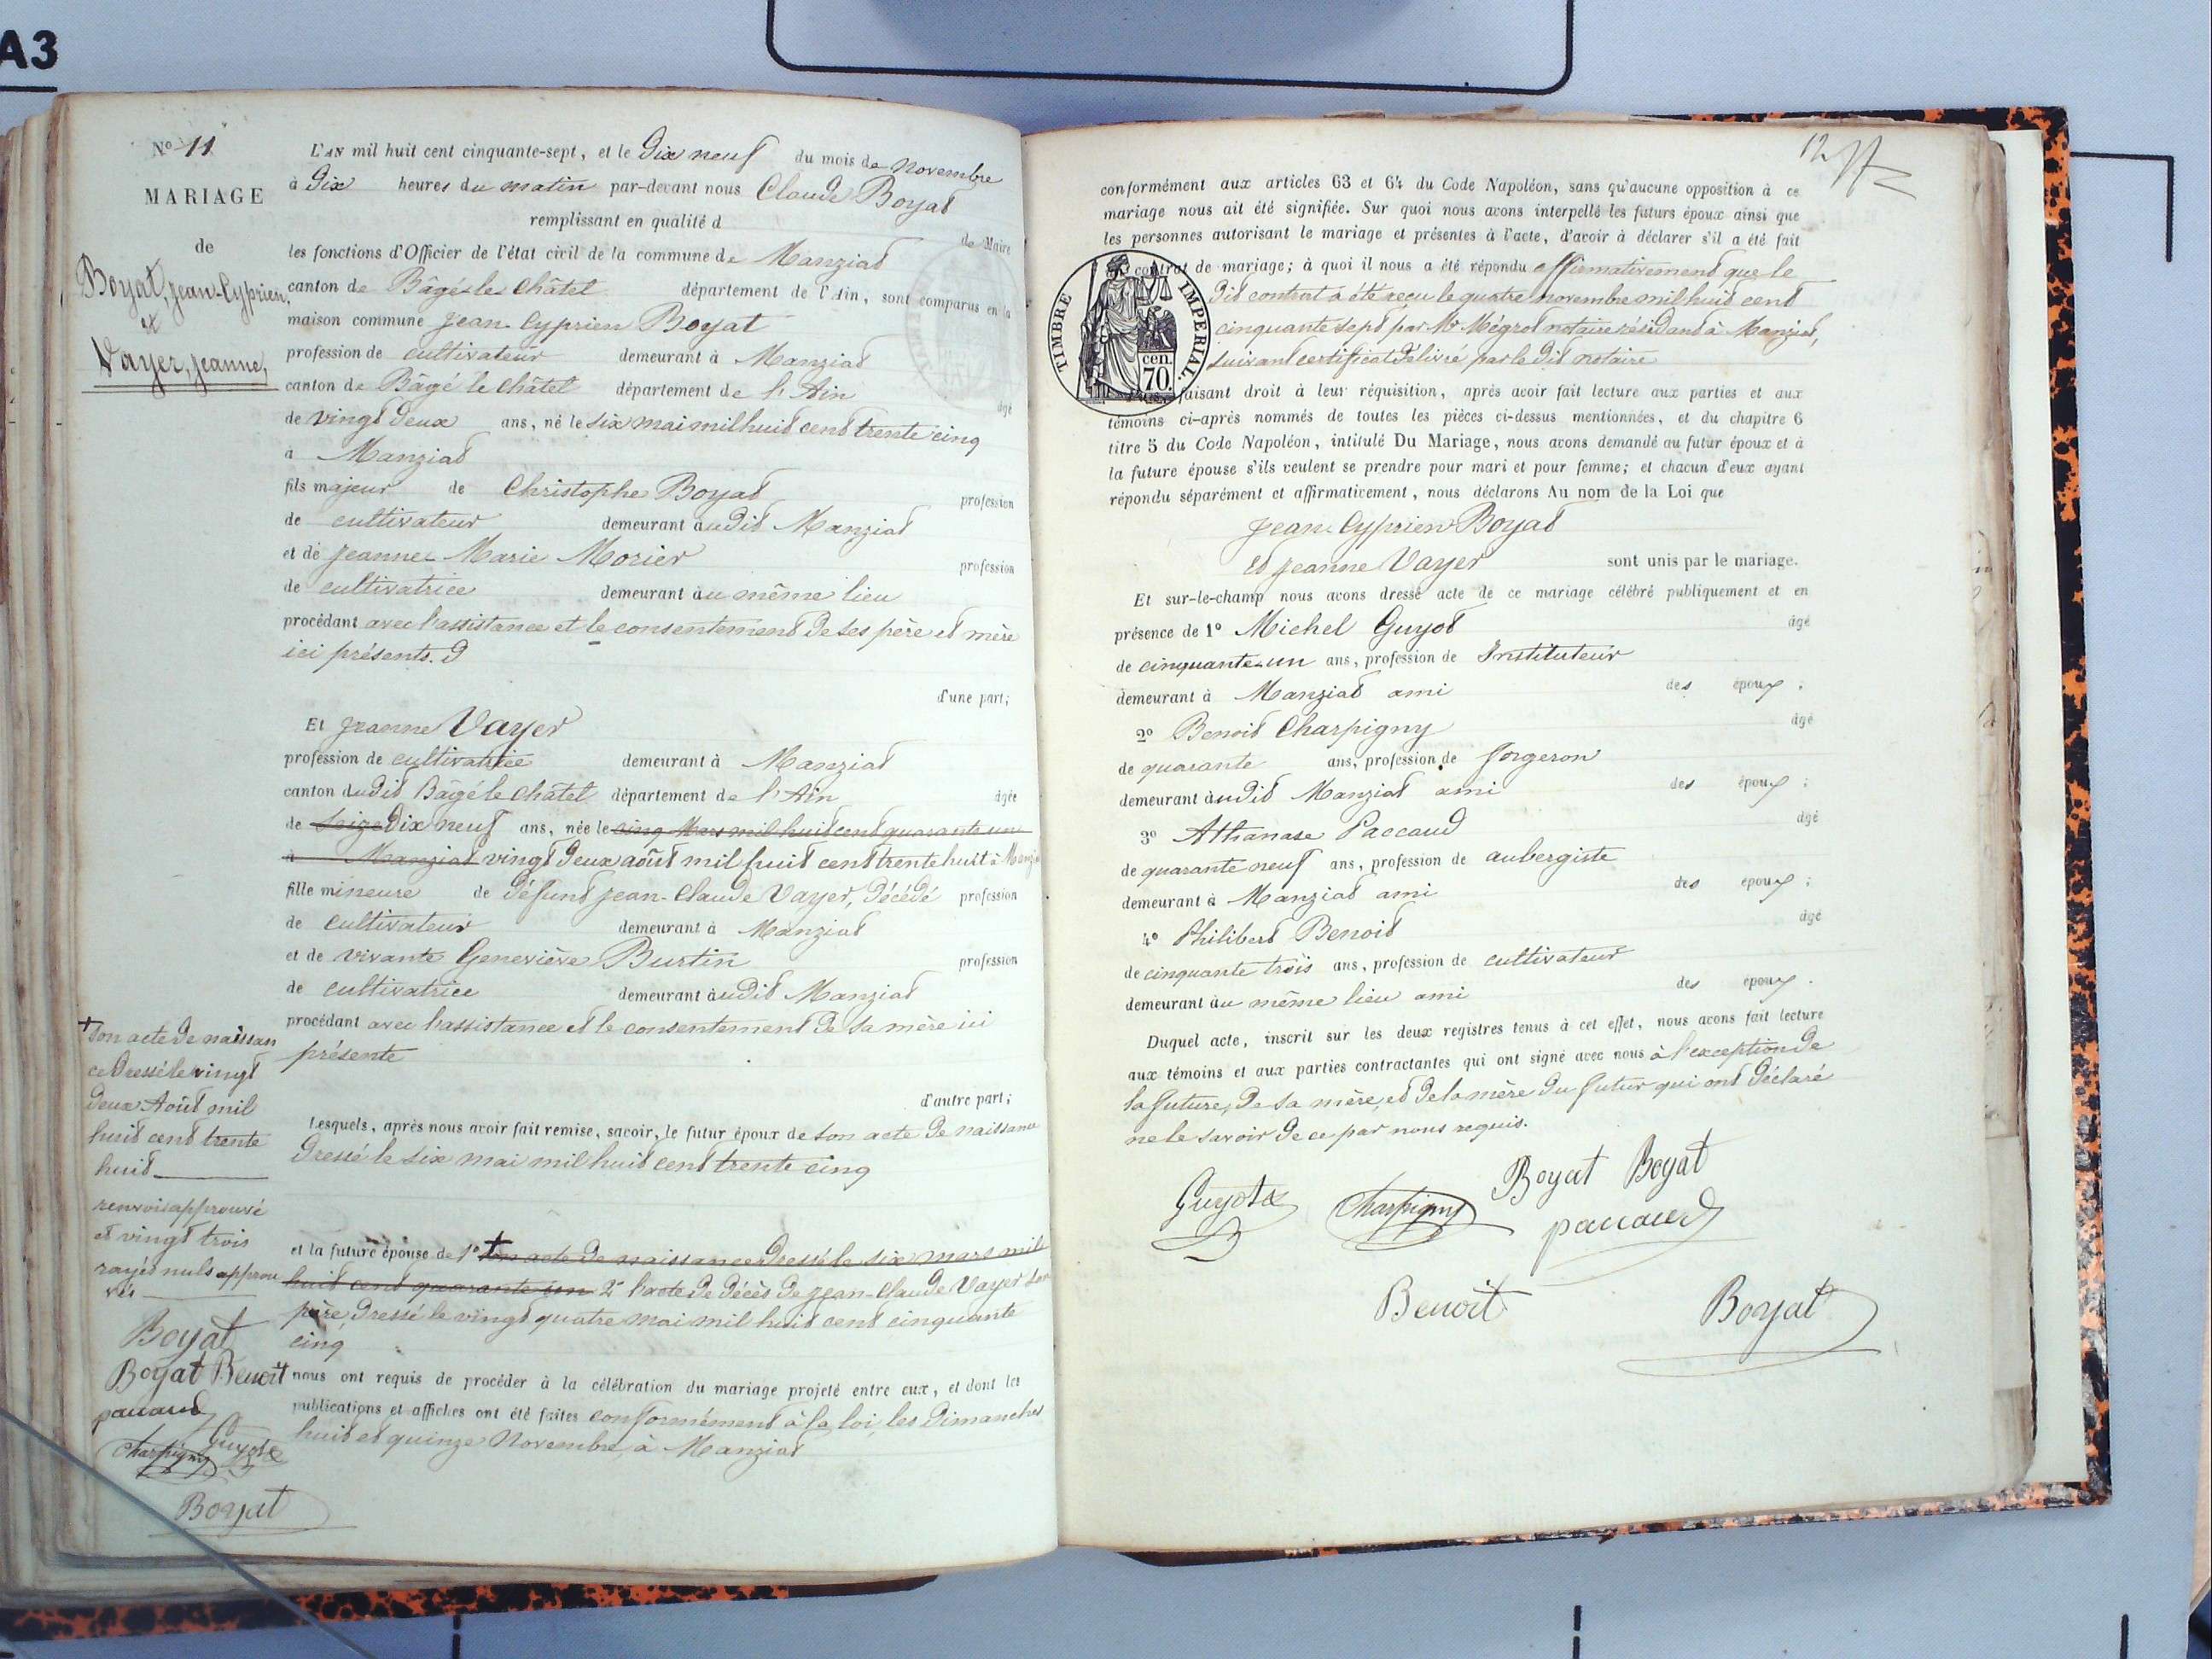 A3
N° 11
MARIAGE
de
Boyat, Jean-Cyprien,
et
Vayer, Jeanne,
L'AN mil huit cent cinquante-sept, et le Dix neuf du mois de Novembre
à Dix heures du matin par-devant nous Claude Boyat
remplissant en qualité d
de Maire
les fonctions d'Officier de l'état civil de la commune de Manziat
canton de Bâgé le Châtel département de l'Ain, sont comparus en la
maison commune Jean Cyprien Boyat
profession de cultivateur demeurant à Manziat
canton de Bâgé le Châtel département de l'Ain
âgé
de vingt Deux ans, né le six mai mil huit cent trente cinq
à Manziat
fils majeur de Christophe Boyat profession
de cultivateur demeurant audit Manziat
et de Jeanne Marie Morier profession
de cultivatrice demeurant au même lieu
procédant avec l'assistance et le consentement de ses père et mère
ici présents. d
d'une part;
Et Jeanne Vayer
profession de cultivatrice demeurant à Manziat
canton dudit Bâgé le Châtel département de l'Ain âgée
de seize Dix neuf ans, née le cinq Mars mil huit cent quarante un
à Manziat vingt deux août mil huit cent trente huit à Manziat
fille mineure de Défunt Jean-Claude Vayer, Décédé profession
de cultivateur demeurant à Manziat
et de vivante Geneviève Burtin profession
de cultivatrice demeurant audit Manziat
procédant avec l'assistance et le consentement de sa mère ici
présente
d'autre part;
Lesquels, après nous avoir fait remise, savoir, le futur époux de son acte de naissance
Dressé le six mai mil huit cent trente cinq
et la future épouse de 1° + son acte de naissance Dressé le six mars mil
huit cent quarante un 2° l'acte de décès de Jean-Claude Vayer son
père, Dressé le vingt quatre mai mil huit cent cinquante
cinq
nous ont requis de procéder à la célébration du mariage projeté entre eux, et dont les
publications et affiches ont été faites conformément à la loi, les Dimanches
huit et quinze Novembre, à Manziat
+ son acte de naissan
ce Dressé le vingt
deux Août mil
huit cent trente
huit
renvoi approuvé
et vingt trois
rayés nuls approu
vés
Boyat
Boyat Benoit
paccaud
Guyot
Charpigny
Boyat
12
conformément aux articles 63 et 64 du Code Napoléon, sans qu'aucune opposition à ce
mariage nous ait été signifiée. Sur quoi nous avons interpellé les futurs époux ainsi que
les personnes autorisant le mariage et présentes à l'acte, d'avoir à déclarer s'il a été fait
contrat de mariage; à quoi il nous a été répondu affirmativement que le
dit contrat a été reçu le quatre novembre mil huit cent
cinquante sept par Mr Mégrot notaire résidant à Manziat,
suivant certificat délivré par le dit notaire
TIMBRE IMPERIAL.
cen.
70.
faisant droit à leur réquisition, après avoir fait lecture aux parties et aux
témoins ci-après nommés de toutes les pièces ci-dessus mentionnées, et du chapitre 6
titre 5 du Code Napoléon, intitulé Du Mariage, nous avons demandé au futur époux et à
la future épouse s'ils veulent se prendre pour mari et pour femme; et chacun d'eux ayant
répondu séparément et affirmativement, nous déclarons Au nom de la Loi que
Jean Cyprien Boyat
Et Jeanne Vayer sont unis par le mariage.
Et sur-le-champ nous avons dressé acte de ce mariage célébré publiquement et en
présence de 1° Michel Guyot âgé
de cinquante-un ans, profession de Instituteur
demeurant à Manziat ami des époux;
2° Benoit Charpigny âgé
de quarante ans, profession de forgeron
demeurant audit Manziat ami des époux;
3° Athanase Paccaud âgé
de quarante neuf ans, profession de aubergiste
demeurant à Manziat ami des époux;
4° Philibert Benoit âgé
de cinquante trois ans, profession de cultivateur
demeurant au même lieu ami des époux.
Duquel acte, inscrit sur les deux registres tenus à cet effet, nous avons fait lecture
aux témoins et aux parties contractantes qui ont signé avec nous à l'exception de
la future, de sa mère, et de la mère du futur qui ont déclaré
ne le savoir de ce par nous requis.
Guyot
Charpigny
Boyat Boyat
paccaud
Benoit
Boyat